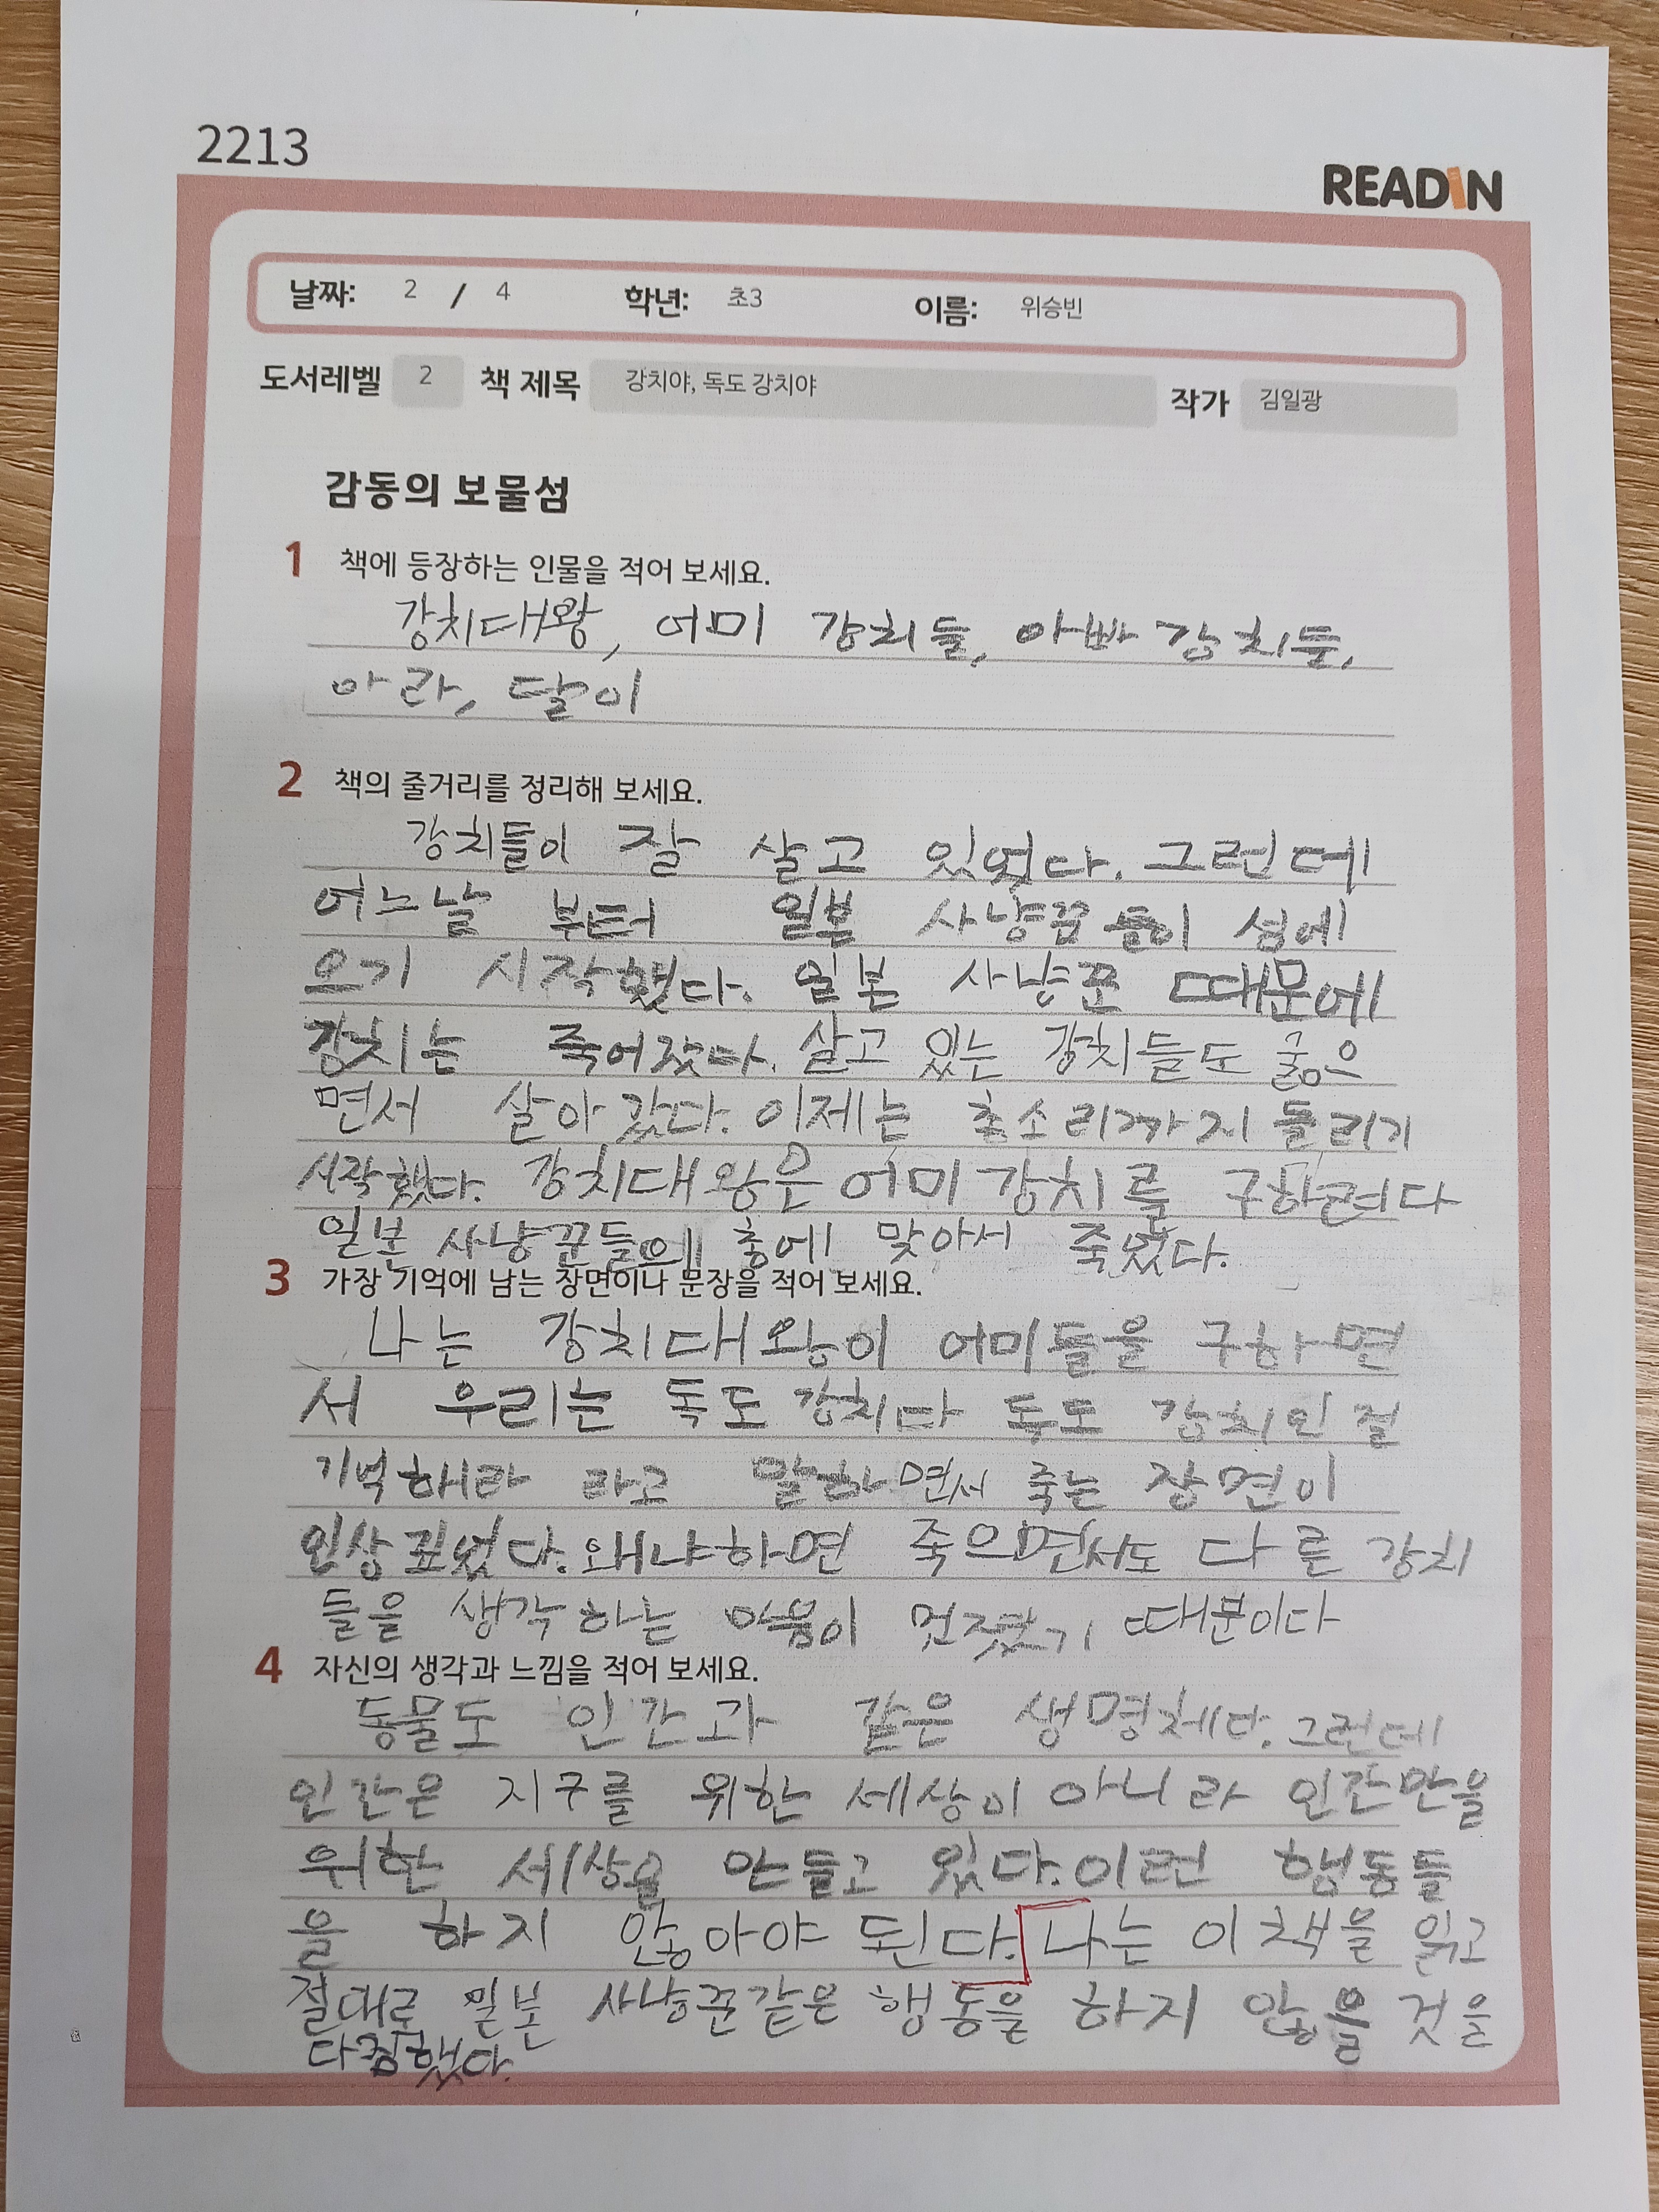 2213
READIN
날짜: 2 / 4 학년: 초3 이름: 위승빈
도서레벨 2 책 제목 강치야, 독도 강치야 작가 김일광
감동의 보물섬
1 책에 등장하는 인물을 적어 보세요.
강치대왕, 어미 강치들, 아빠 강치들,
아라, 달이
2 책의 줄거리를 정리해 보세요.
강치들이 잘 살고 있었다. 그런데
어느날 부터 일본 사냥꾼들이 섬에
오기 시작했다. 일본 사냥꾼 때문에
강치는 죽어갔다. 살고 있는 강치들도 굶으
면서 살아 갔다. 이제는 총소리까지 들리기
시작했다. 강치대왕은 어미 강치를 구하려다
일본 사냥꾼들의 총에 맞아서 죽었다.
3 가장 기억에 남는 장면이나 문장을 적어 보세요.
나는 강치대왕이 어미들을 구하면
서 우리는 독도 강치다 독도 강치인 걸
기억해라 라고 말하면서 죽는 장면이
인상 깊었다. 왜냐하면 죽으면서도 다른 강치
들을 생각하는 마음이 멋졌기 때문이다
4 자신의 생각과 느낌을 적어 보세요.
동물도 인간과 같은 생명체다. 그런데
인간은 지구를 위한 세상이 아니라 인간만을
위한 세상을 만들고 있다. 이런 행동들
을 하지 않아야 된다. 나는 이 책을 읽고
절대로 일본 사냥꾼같은 행동을 하지 않을 것을
다짐했다.